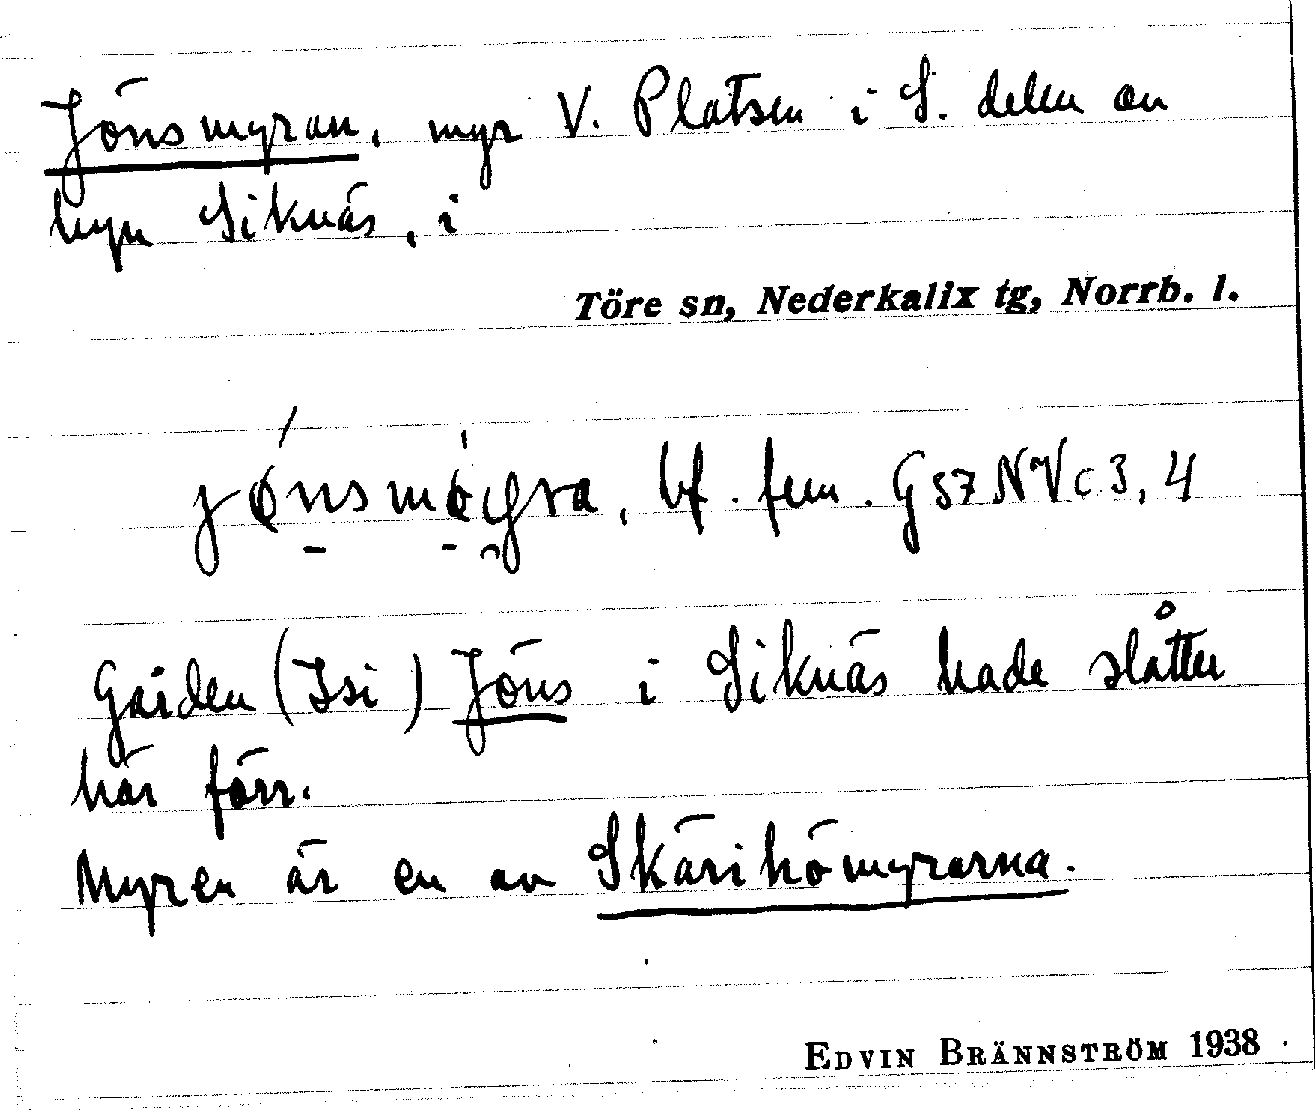 Jönsmyran, myr V. Platsen i S. delen av
byn Siknäs, i
Töre sn, Nederkalix tg, Norrb. l.
bf. fem. G57NVc3,4
Gården (Isi) Jöns i Siknäs hade slåtter
här förr.
Myren är en av Skärihömyrarna.
EDVIN BRÄNNSTRÖM 1938